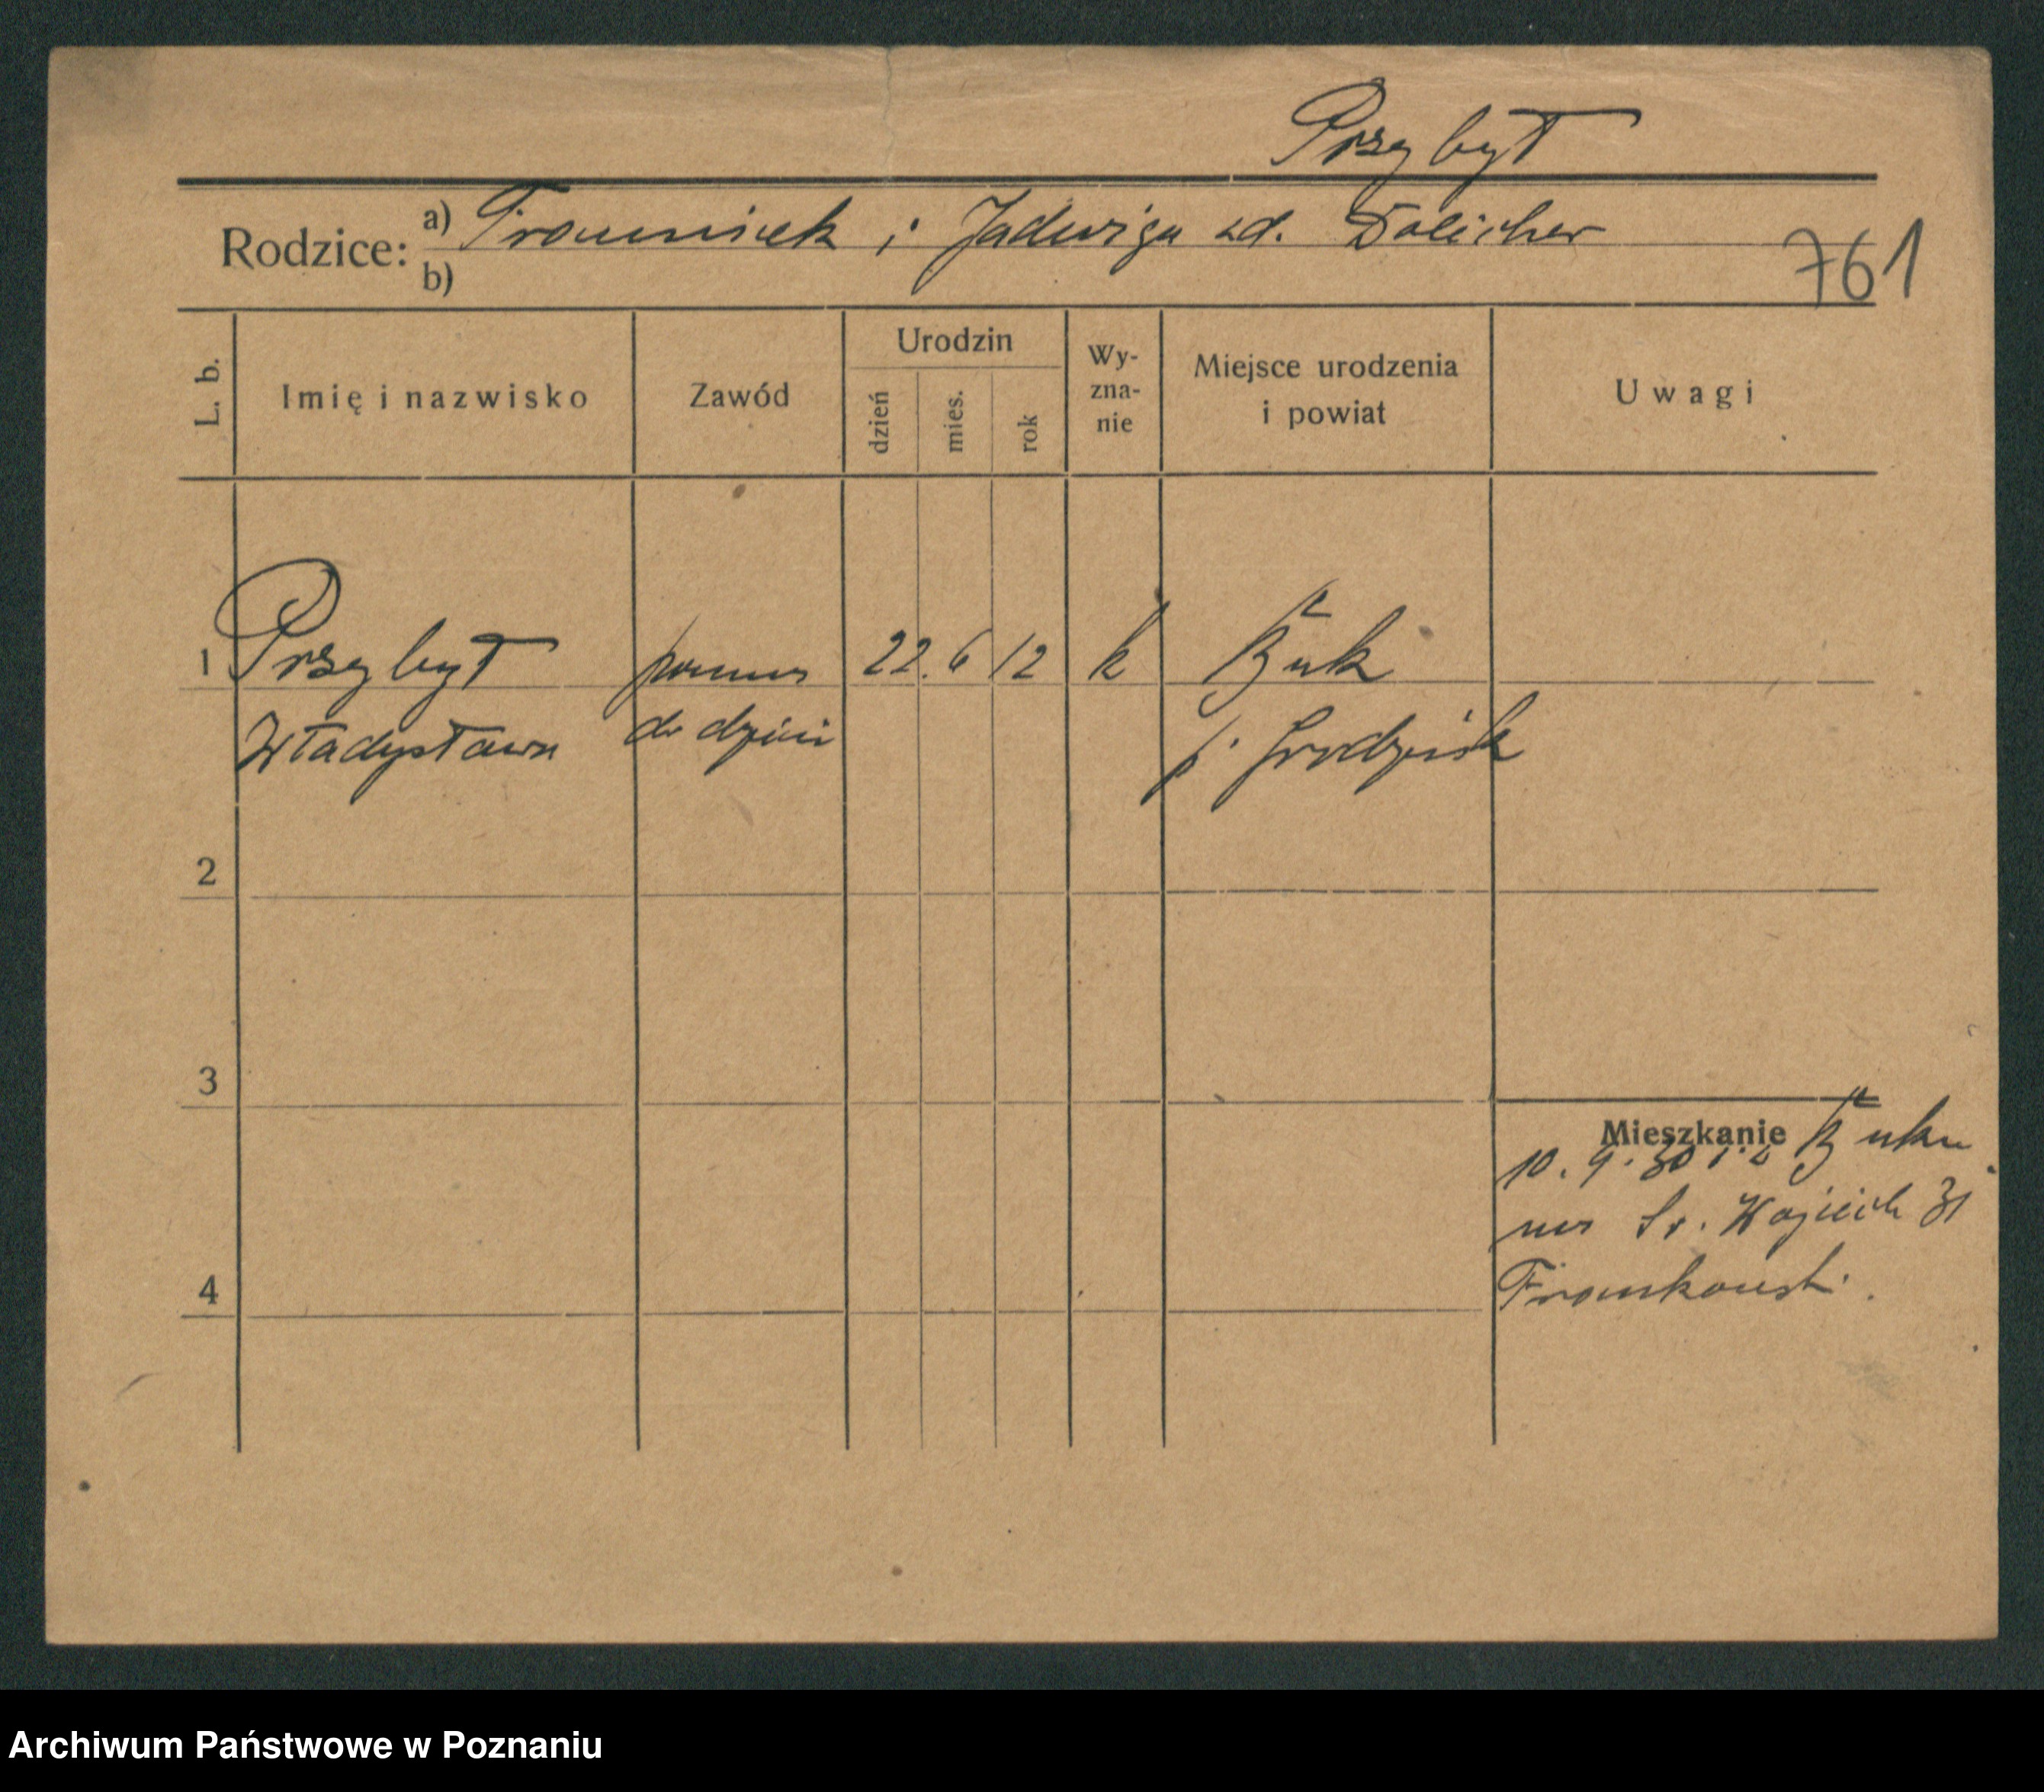 Przybył
Rodzice: a) Franciszek i Jadwiga zd.
b)
761
L. b.
Imię i nazwisko
Zawód
Urodzin
dzień
mies.
rok
Wy-
zna-
nie
Miejsce urodzenia
i powiat
Uwagi
1 Przybył 22. 6 12 k Buk
Władysława do dzieci p. Grodzisk
2
3
4
Mieszkanie
10. 9. 30 z Buku
Św. Wojciech 31
Frankowski.
Archiwum Państwowe w Poznaniu